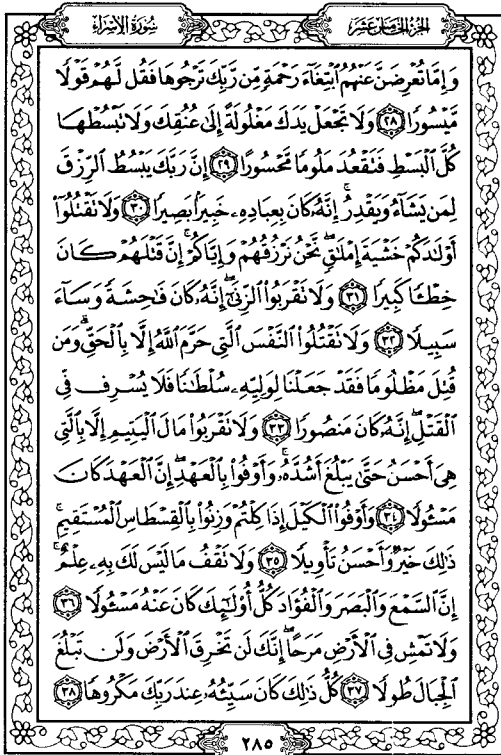 سُورَةُ الإِسْرَاءِ
الجُزءُ الخَامِسَ عَشَرَ
وَإِمَّا تُعْرِضَنَّ عَنْهُمُ ٱبْتِغَآءَ رَحْمَةٍ مِّن رَّبِّكَ تَرْجُوهَا فَقُل لَّهُمْ قَوْلًا
مَّيْسُورًا ٢٨ وَلَا تَجْعَلْ يَدَكَ مَغْلُولَةً إِلَىٰ عُنُقِكَ وَلَا تَبْسُطْهَا
كُلَّ ٱلْبَسْطِ فَتَقْعُدَ مَلُومًا مَّحْسُورًا ٢٩ إِنَّ رَبَّكَ يَبْسُطُ ٱلرِّزْقَ
لِمَن يَشَآءُ وَيَقْدِرُ ۚ إِنَّهُۥ كَانَ بِعِبَادِهِۦ خَبِيرًۢا بَصِيرًا ٣٠ وَلَا تَقْتُلُوٓا۟
أَوْلَٰدَكُمْ خَشْيَةَ إِمْلَٰقٍ ۖ نَّحْنُ نَرْزُقُهُمْ وَإِيَّاكُمْ ۚ إِنَّ قَتْلَهُمْ كَانَ
خِطْـًٔا كَبِيرًا ٣١ وَلَا تَقْرَبُوا۟ ٱلزِّنَىٰٓ ۖ إِنَّهُۥ كَانَ فَٰحِشَةً وَسَآءَ
سَبِيلًا ٣٢ وَلَا تَقْتُلُوا۟ ٱلنَّفْسَ ٱلَّتِى حَرَّمَ ٱللَّهُ إِلَّا بِٱلْحَقِّ ۗ وَمَن
قُتِلَ مَظْلُومًا فَقَدْ جَعَلْنَا لِوَلِيِّهِۦ سُلْطَٰنًا فَلَا يُسْرِف فِّى
ٱلْقَتْلِ ۖ إِنَّهُۥ كَانَ مَنصُورًا ٣٣ وَلَا تَقْرَبُوا۟ مَالَ ٱلْيَتِيمِ إِلَّا بِٱلَّتِى
هِىَ أَحْسَنُ حَتَّىٰ يَبْلُغَ أَشُدَّهُۥ ۚ وَأَوْفُوا۟ بِٱلْعَهْدِ ۖ إِنَّ ٱلْعَهْدَ كَانَ
مَسْـُٔولًا ٣٤ وَأَوْفُوا۟ ٱلْكَيْلَ إِذَا كِلْتُمْ وَزِنُوا۟ بِٱلْقِسْطَاسِ ٱلْمُسْتَقِيمِ ۚ
ذَٰلِكَ خَيْرٌ وَأَحْسَنُ تَأْوِيلًا ٣٥ وَلَا تَقْفُ مَا لَيْسَ لَكَ بِهِۦ عِلْمٌ ۚ
إِنَّ ٱلسَّمْعَ وَٱلْبَصَرَ وَٱلْفُؤَادَ كُلُّ أُو۟لَٰٓئِكَ كَانَ عَنْهُ مَسْـُٔولًا ٣٦
وَلَا تَمْشِ فِى ٱلْأَرْضِ مَرَحًا ۖ إِنَّكَ لَن تَخْرِقَ ٱلْأَرْضَ وَلَن تَبْلُغَ
ٱلْجِبَالَ طُولًا ٣٧ كُلُّ ذَٰلِكَ كَانَ سَيِّئُهُۥ عِندَ رَبِّكَ مَكْرُوهًا ٣٨
٢٨٥